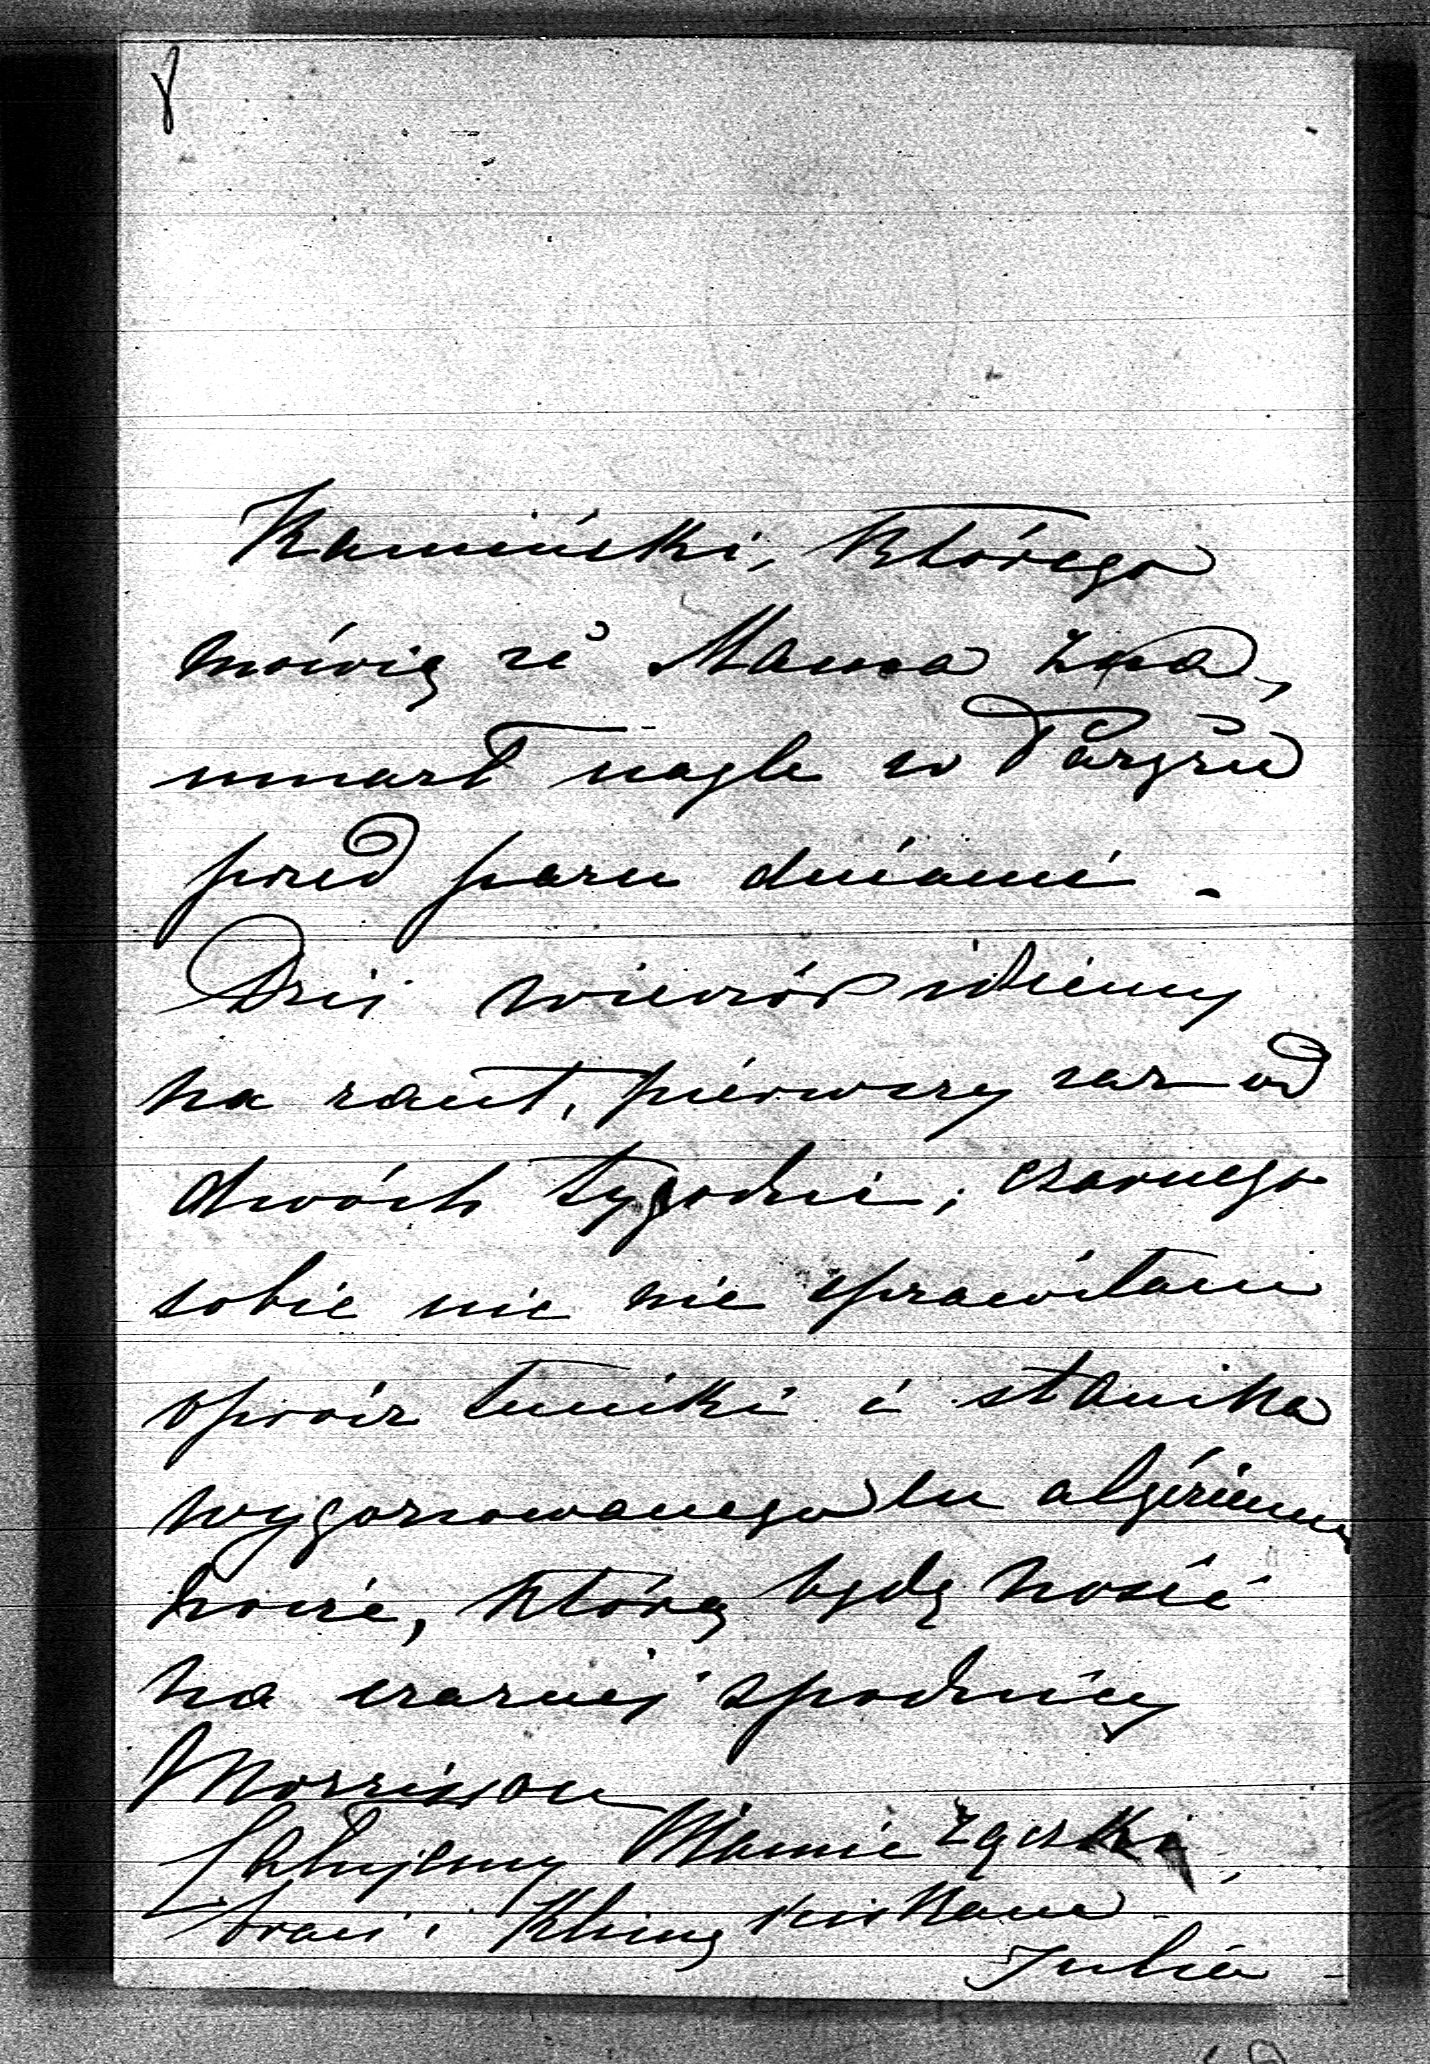 8
Kamiński, którego
mówią że Mama zna,
umarł nagle w Paryżu
przed paru dniami.
Dziś wieczór idziemy
na raut, pierwszy raz od
dwóch tygodni; czarnego
sobie nic nie sprawiłam
oprócz tuniki i stanika
wygorsowanego en algérienne
noire, którą będę nosić
na czarnej spódnicy
Morrisson
Całujemy Mamie rączki,
braci i Klimę ściskam
Julia